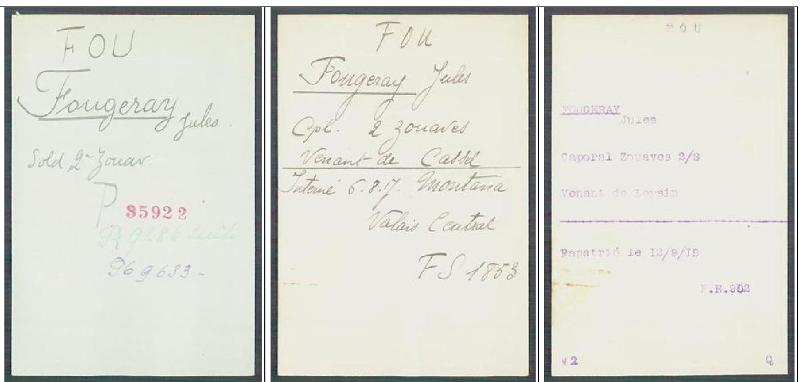 FOU
Fougeray
Jules.
Sold 2e Zouav
P 35922
P 69633 -
FOU
Fougeray Jules
Cpl. 2 Zouaves
Venant de Cassel
Interné 6.8.17. Montana
Valais Central
FS 1853
F O U
FOUGERAY
Jules
Caporal Zouaves 2/S
Venant de Lovain
Rapatrié le 12/9/18
F.R.902
W2 Q